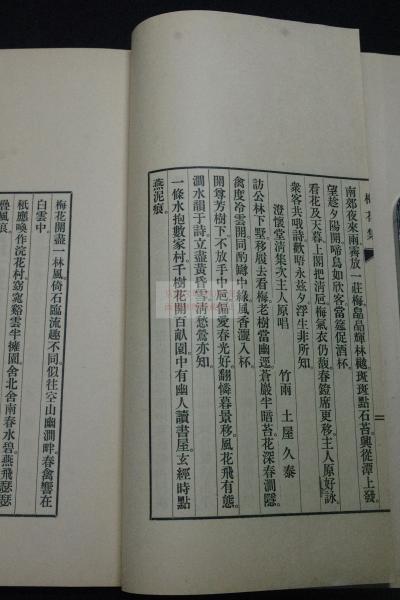 梅花集
二
南郊夜來雨霽放一莊梅晶晶輝林樾斑斑點石苔興從潭上發
望趁夕陽開啼鳥如欣客當筵促酒杯
看花及天暮上閣把清巵梅氣衣仍馥春鐙席更移主人原好詠
衆客共哦詩歡唔永玆夕浮生非所知
澄懷堂清集次主人原唱
竹雨 土屋久泰
訪公林下墅移履去看梅老樹當幽逕蒼巖半暗苔花深春澗隱
禽度冷雲開同酌罇中綠風香灔入杯
開尊芳樹下不放手中巵偏愛春光好翻憐暮景移風花飛有態
澗水韻于詩立盡黃昏雪清愁鶯亦知
一條水抱數家村千樹花開百畝園中有幽人讀書屋玄經時點
燕泥痕
梅花開盡一林風倚石臨流趣不同似往空山幽澗畔春禽響在
白雲中
秪應喚作浣花村窈窕谿雲半擁園舍北舍南春水碧燕飛瑟瑟
風痕